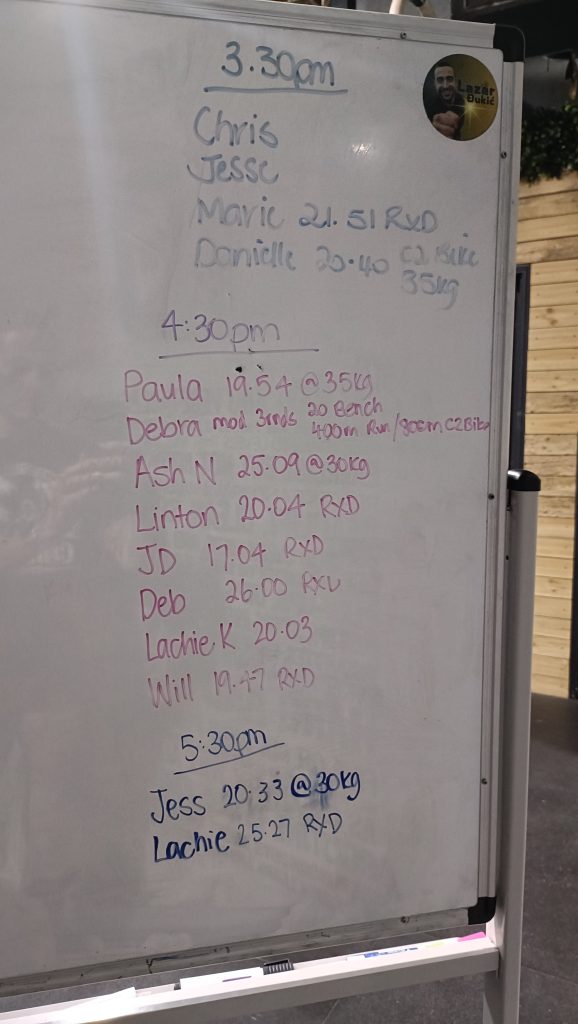 3.30pm
Lazar
Đukić
Chris
Jesse
Marie 21.51 RXD
Danielle 20.40 C2 Bike
35kg
4:30pm
Paula 19.54 @35kg
Debra mod 3rnds 20 Bench
400m Run/900m C2Bike
Ash N 25.09 @30kg
Linton 20.04 RXD
JD 17.04 RXD
Deb 26.00 RXD
Lachie K 20.03
Will 19.47 RXD
5:30pm
Jess 20.33 @30kg
Lachie 25.27 RXD